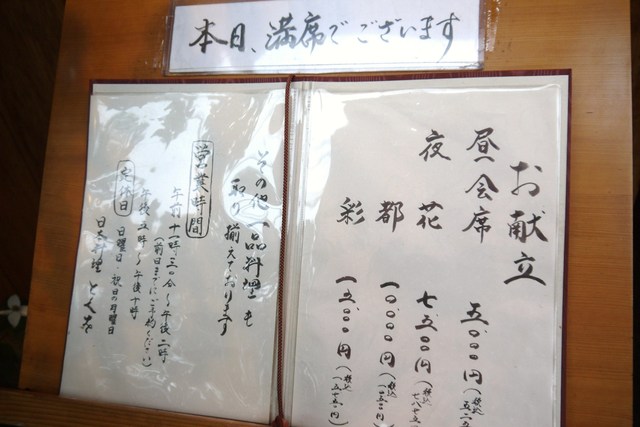 本日、満席でございます
お献立
昼会席 五、〇〇〇円(税込
夜 花 七、五〇〇円(税込
都 一〇、〇〇〇円(税込
彩 一五、〇〇〇円(税込
その他一品料理も
取り揃えております
営業時間
午前十一時三〇分〜午後二時
(前日までにご予約ください)
午後五時〜午後十時
定休日
日曜日・祝日の月曜日
日本料理 とくを